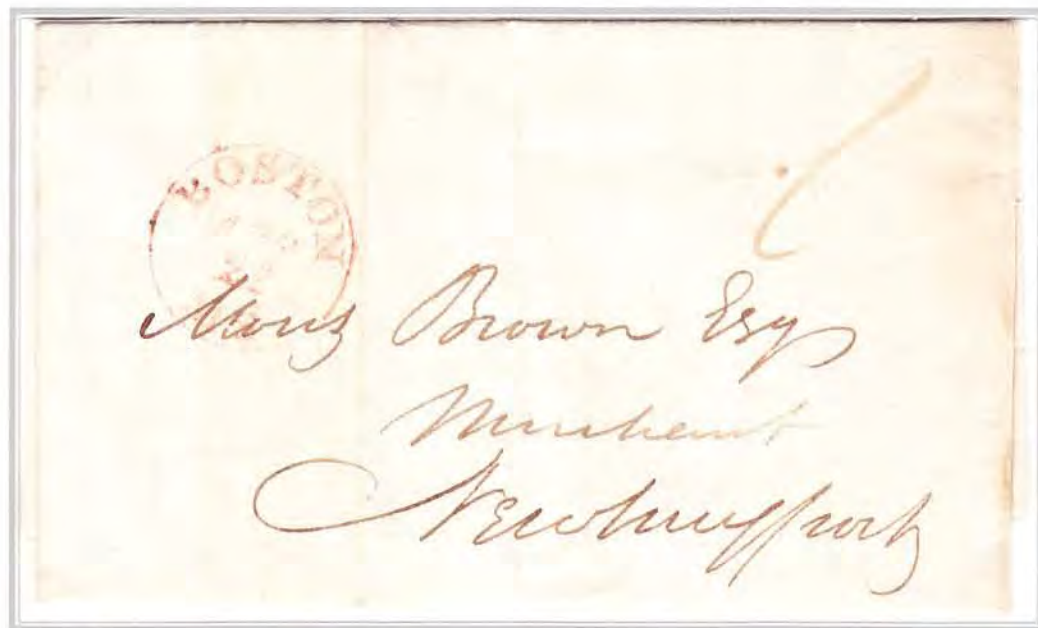 BOSTON
Moses Brown Esq
Merchant
Newburyport